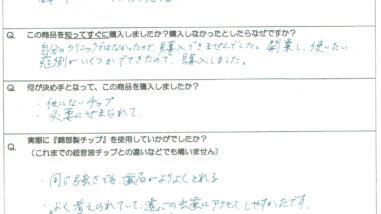 Q. この商品を知ってすぐに購入しましたか？購入しなかったとしたらなぜですか？
自分のクリニックではなかったので、購入できませんでした。開業し、使いたい
症例がいくつかでてきたので、購入しました。
Q. 何が決め手となって、この商品を購入しましたか？
・他にないチップ
・必要にせまられて。
Q. 実際に『錦部製チップ』を使用していかがでしたか？
（これまでの超音波チップとの違いなどでも構いません）
・同じ強さでも歯石がよりよくとれる
・よく考えられていて、遠心の歯薬にアクセスしやすかったです。